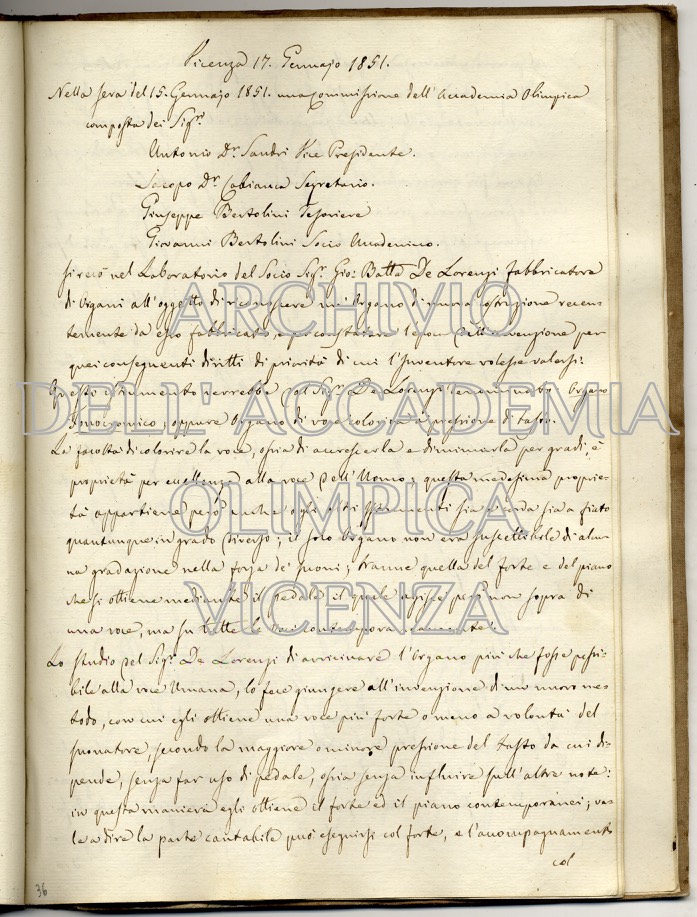 Vicenza 17. Gennajo 1851.
Nella sera del 15. Gennajo 1851. una Commissione dell'Accademia Olimpica
composta dei Sigri
Antonio Dr. Sandri Vice Presidente.
Jacopo Dr. Cabianca Segretario.
Giuseppe Bertolini Tesoriere
Giovanni Bertolini Socio Accademico.
si recò nel Laboratorio del Socio Sigr. Gio: Batta De Lorenzi Fabbricatore
di Organi all'oggetto di riconoscere un'Organo di nuova costruzione recen-
temente da esso fabbricato, e per constatare l'epoca dell'invenzione per
quei conseguenti diritti di priorità di cui l'Inventore volesse valersi.
Questo istrumento verrebbe dal Sigr. De Lorenzi denominato: Organo
Fonocromico, oppure Organo di voce colorita a pressione di tasto.
La facoltà di colorire la voce, ossia di accrescerla e diminuirla per gradi, è
proprietà per eccellenza alla voce dell'Uomo; questa medesima proprie-
tà appartiene però anche agli altri istrumenti sia a corda sia a fiato
quantunque in grado diverso; il solo Organo non era suscettibile di alcu-
na gradazione nella forza de' suoni; tranne quella del forte e del piano
che si ottiene mediante il pedale il quale agisce però non sopra di
una voce, ma su tutte le voci contemporaneamente.
Lo studio del Sigr. De Lorenzi di avvicinare l'Organo più che fosse possi-
bile alla voce Umana, lo fece giungere all'invenzione di un nuovo me-
todo, con cui egli ottiene una voce più forte o meno a volontà del
suonatore, secondo la maggiore o minore pressione del tasto da cui di-
pende, senza far uso di pedale, ossia senza influire sull'altre note:
in questa maniera egli ottiene il forte ed il piano contemporanei; va-
le a dire la parte cantabile può eseguirsi col forte, e l'accompagnamento
col
36
ARCHIVIO
DELL'ACCADEMIA
OLIMPICA
VICENZA